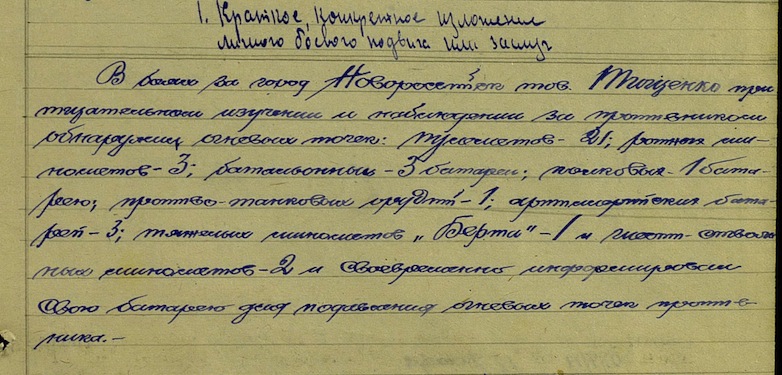 1. Краткое, конкретное изложение
личного боевого подвига или заслуг
В боях за город Новороссийск тов. Тищенко при
тщательном изучении и наблюдении за противником
обнаружил огневых точек: пулеметов - 21; ротных ми-
нометов - 3; батальонных - 3 батареи; полковых - 1 бата-
рею; противо-танковых орудий - 1; артиллерийских бата-
рей - 3; тяжелых минометов „Берта" - 1 и шести-стволь-
ных минометов - 2 и своевременно информировал
свою батарею для подавления огневых точек против-
ника. -